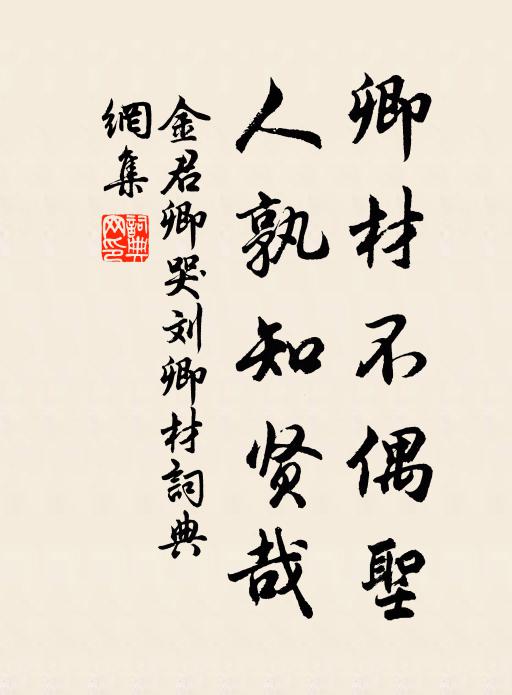 卿材不偶聖
人孰知贤哉
金君卿哭刘卿材詞典
網集
詞典網印